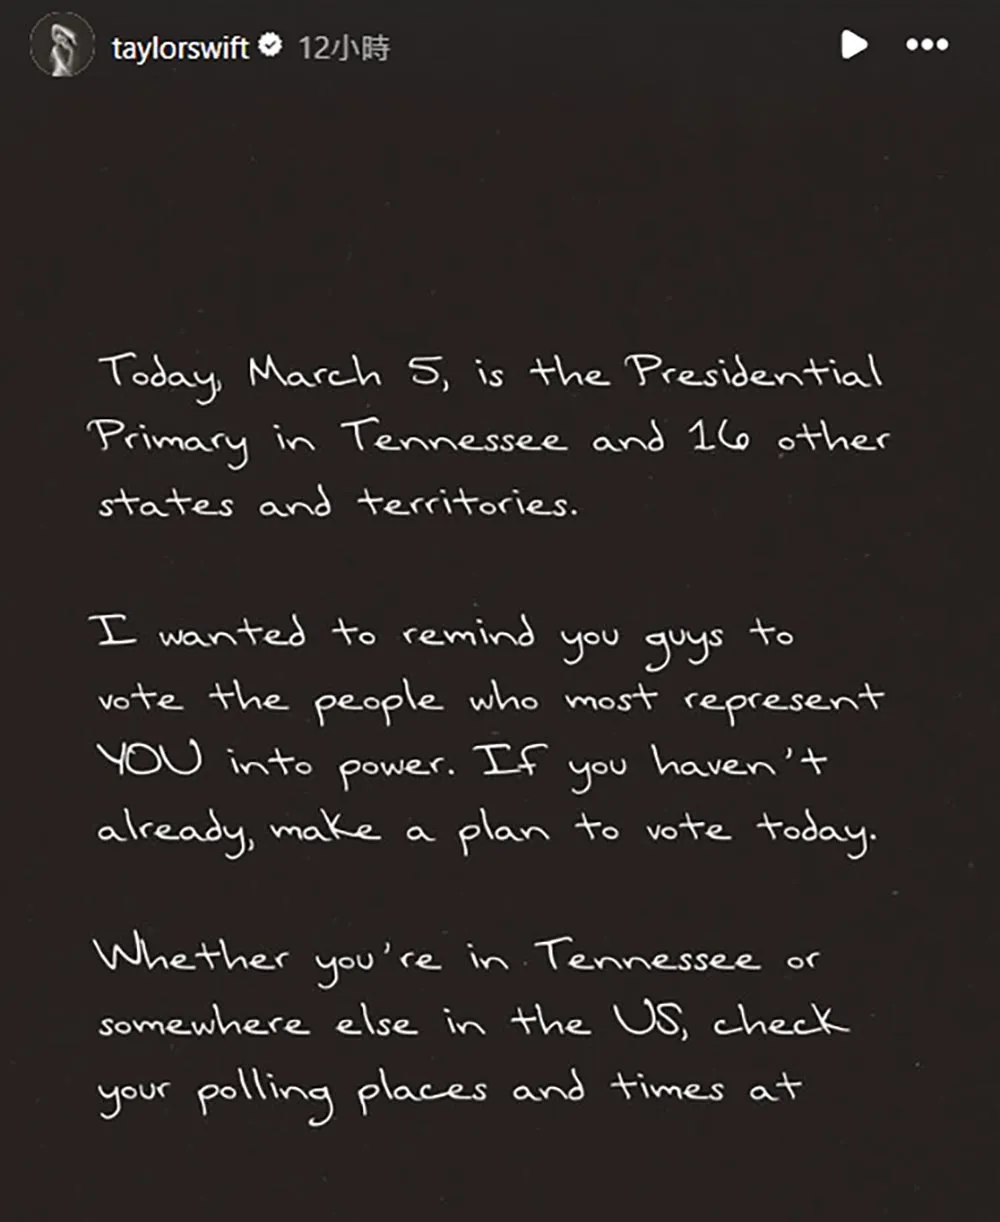 taylorswift 12小時
Today, March 5, is the Presidential
Primary in Tennessee and 16 other
states and territories.
I wanted to remind you guys to
vote the people who most represent
YOU into power. If you haven't
already, make a plan to vote today.
Whether you're in Tennessee or
somewhere else in the US, check
your polling places and times at